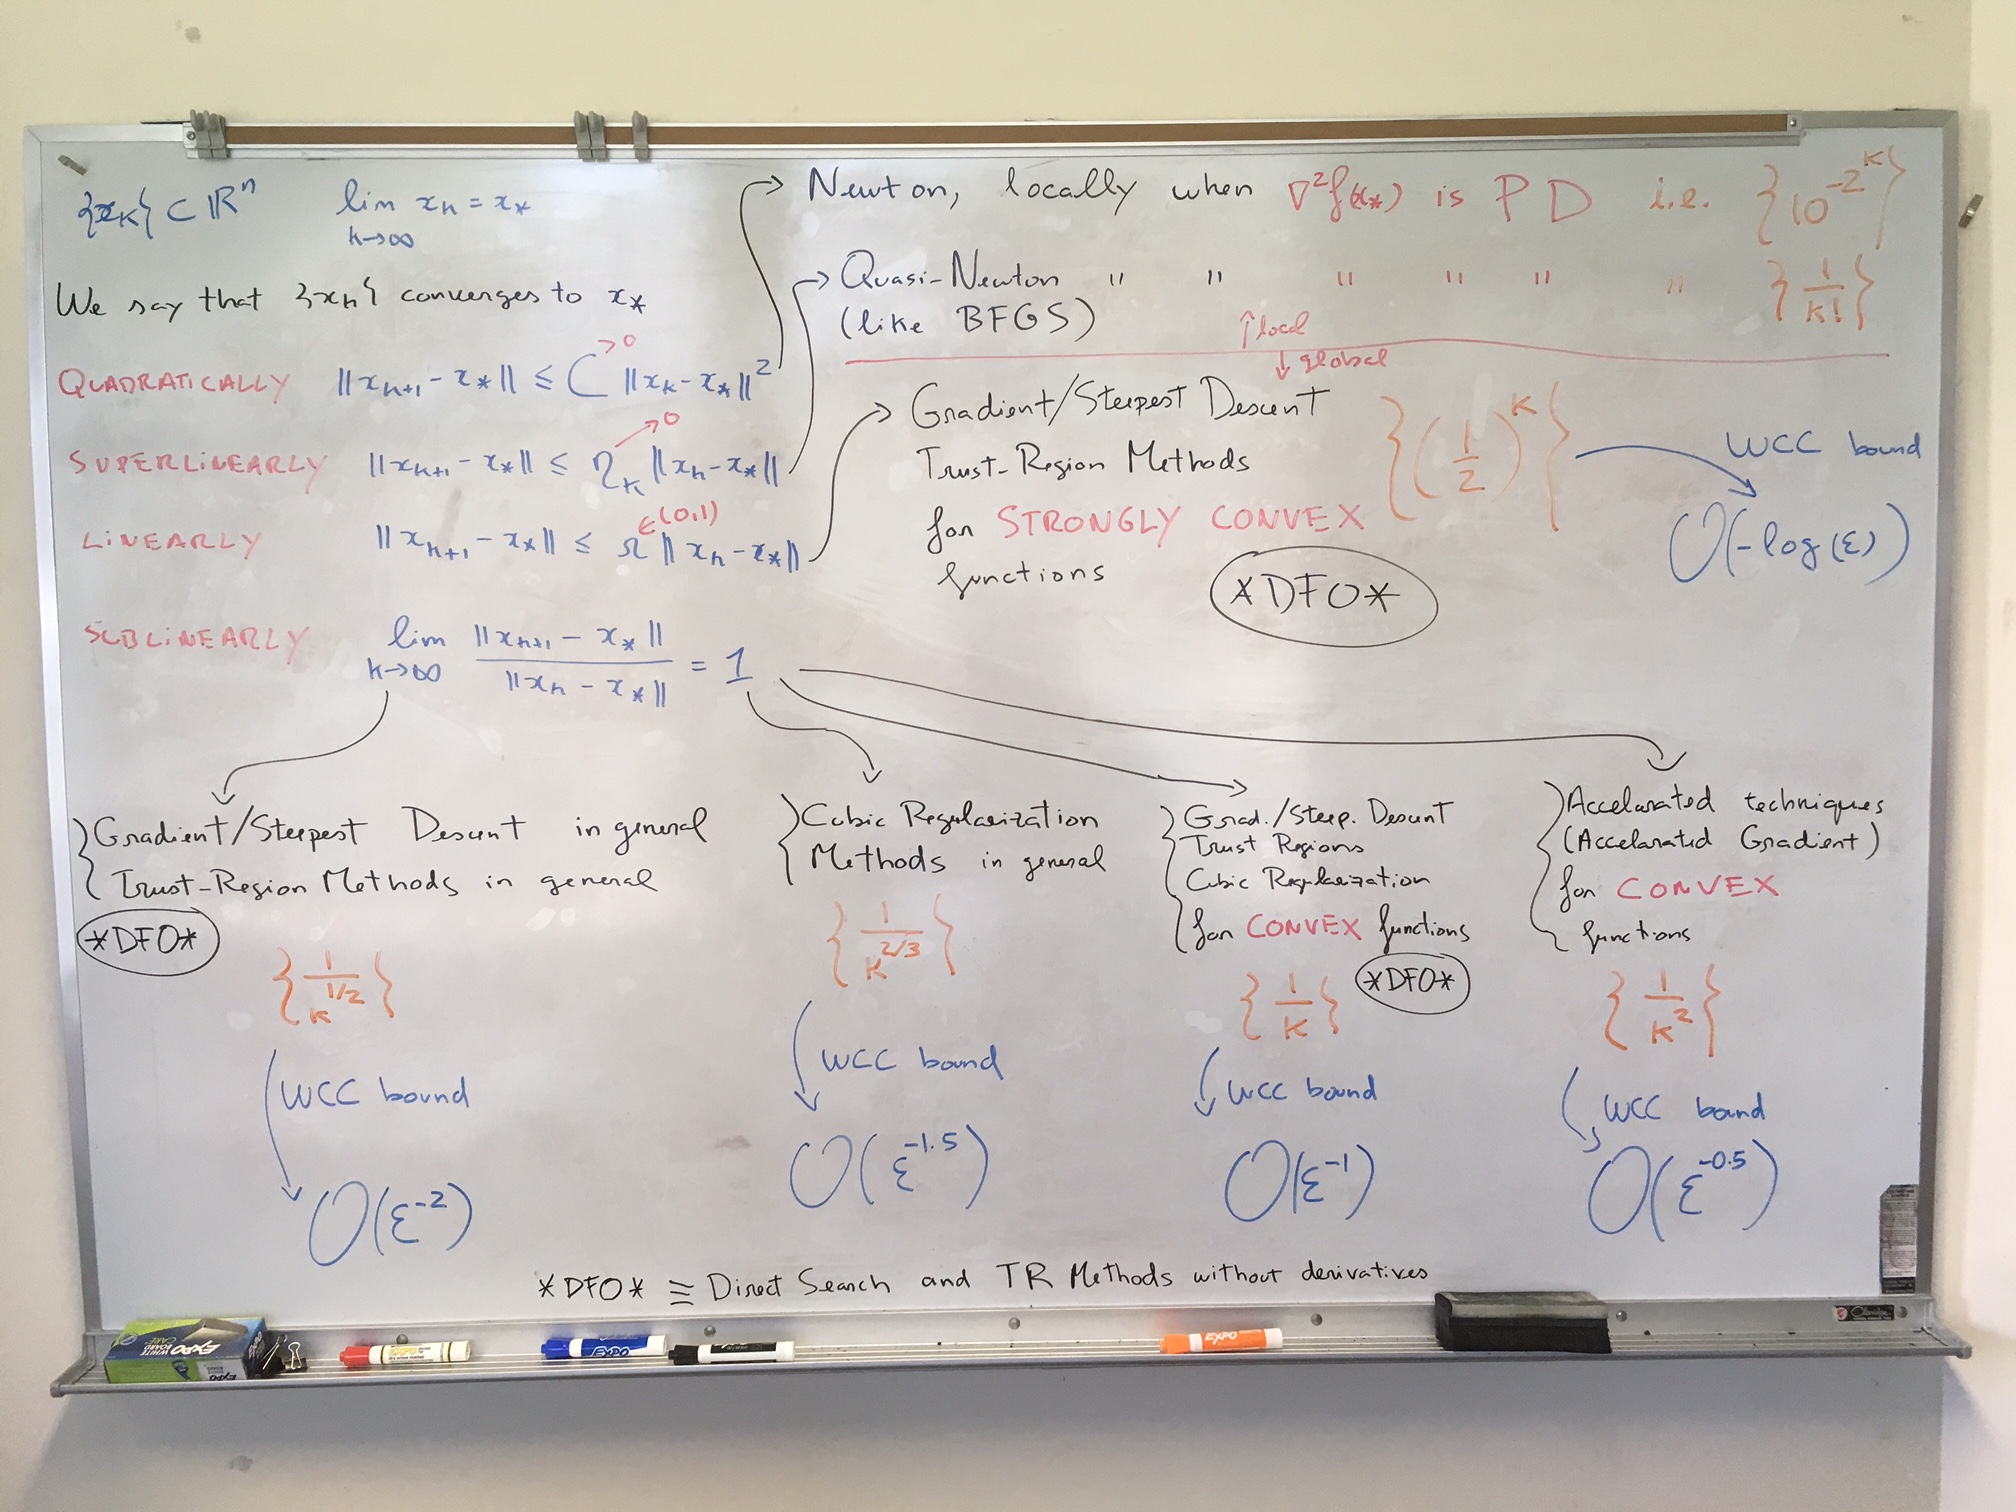 {x_K} ⊂ ℝⁿ lim x_k = x_*
k→∞
We say that {x_k} converges to x_*
QUADRATICALLY ‖x_{k+1} - x_*‖ ≤ C ‖x_k - x_*‖²
>0
SUPERLINEARLY ‖x_{k+1} - x_*‖ ≤ η_K ‖x_k - x_*‖
→0
LINEARLY ‖x_{k+1} - x_*‖ ≤ r ‖x_k - x_*‖
∈(0,1)
SUBLINEARLY lim ‖x_{k+1} - x_*‖ / ‖x_k - x_*‖ = 1
k→∞
Newton, locally when ∇²f(x_*) is PD i.e. {10^{-2^K}}
Quasi-Newton " " " " " " {1/k!}
(like BFGS)
↑ local
↓ global
Gradient/Steepest Descent
Trust-Region Methods
for STRONGLY CONVEX
functions
{(1/2)^K}
WCC bound
O(-log(ε))
*DFO*
Gradient/Steepest Descent in general
Trust-Region Methods in general
*DFO*
{1/K^{1/2}}
WCC bound
O(ε^{-2})
Cubic Regularization
Methods in general
{1/K^{2/3}}
WCC bound
O(ε^{-1.5})
Grad./Steep. Descent
Trust Regions
Cubic Regularization
for CONVEX functions
*DFO*
{1/K}
WCC bound
O(ε^{-1})
Accelarated techniques
(Accelarated Gradient)
for CONVEX
functions
{1/K²}
WCC bound
O(ε^{-0.5})
*DFO* ≡ Direct Search and TR Methods without derivatives
EXPO
WHITE BOARD CARE
EXPO
EXPO
EXPO